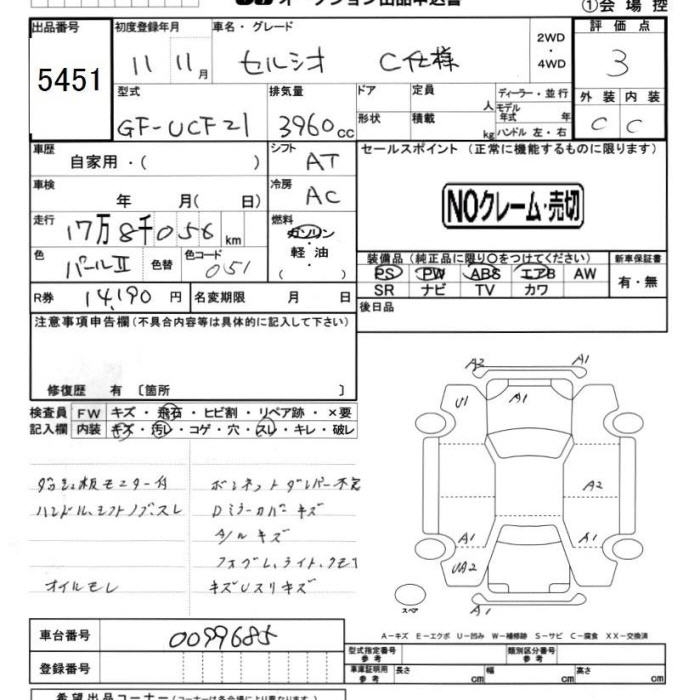 オークション出品申込書
①会場控
出品番号 初度登録年月 車名・グレード 2WD・4WD 評価点
5451 11 11月 セルシオ C仕様 3
型式 排気量 ドア 定員 人 ディーラー・並行 外装 内装
GF-UCF21 3960cc 形状 積載 kg モデル年式 年 ハンドル 左・右 C C
車歴 自家用・( ) シフト AT セールスポイント (正常に機能するものに限ります)
車検 年 月( 日) 冷房 AC
NOクレーム・売切
走行 17万8千056km 燃料 ガソリン 軽油 ( )
色 パールII 色替 色コード 051
装備品 (純正品に限り○をつけてください) 新車保証書
PS PW ABS エアB AW 有・無
SR ナビ TV カワ
R券 14,190円 名変期限 月 日 後日品
注意事項申告欄(不具合内容等は具体的に記入して下さい)
修復歴 有 〔箇所 〕
検査員 FW キズ・飛石・ヒビ割・リペア跡・×要
記入欄 内装 キズ・汚レ・コゲ・穴・スレ・キレ・破レ
A2 A1
U1 A1
A2
A1 A1
UA2
スペア A1
モニター付 ボンネットダンパー不良
ハンドル、シフトノブ、スレ Dミラーカバーキズ
A/Wキズ
オイルモレ キズUスリキズ
車台番号 0099685
A-キズ E-エクボ U-凹み W-補修跡 S-サビ C-腐食 XX-交換済
型式指定番号 参考 類別区分番号 参考
登録番号 車庫証明用 参考 長さ cm 幅 cm 高さ cm
希望出品コーナー(コーナーは各会場により異なります)